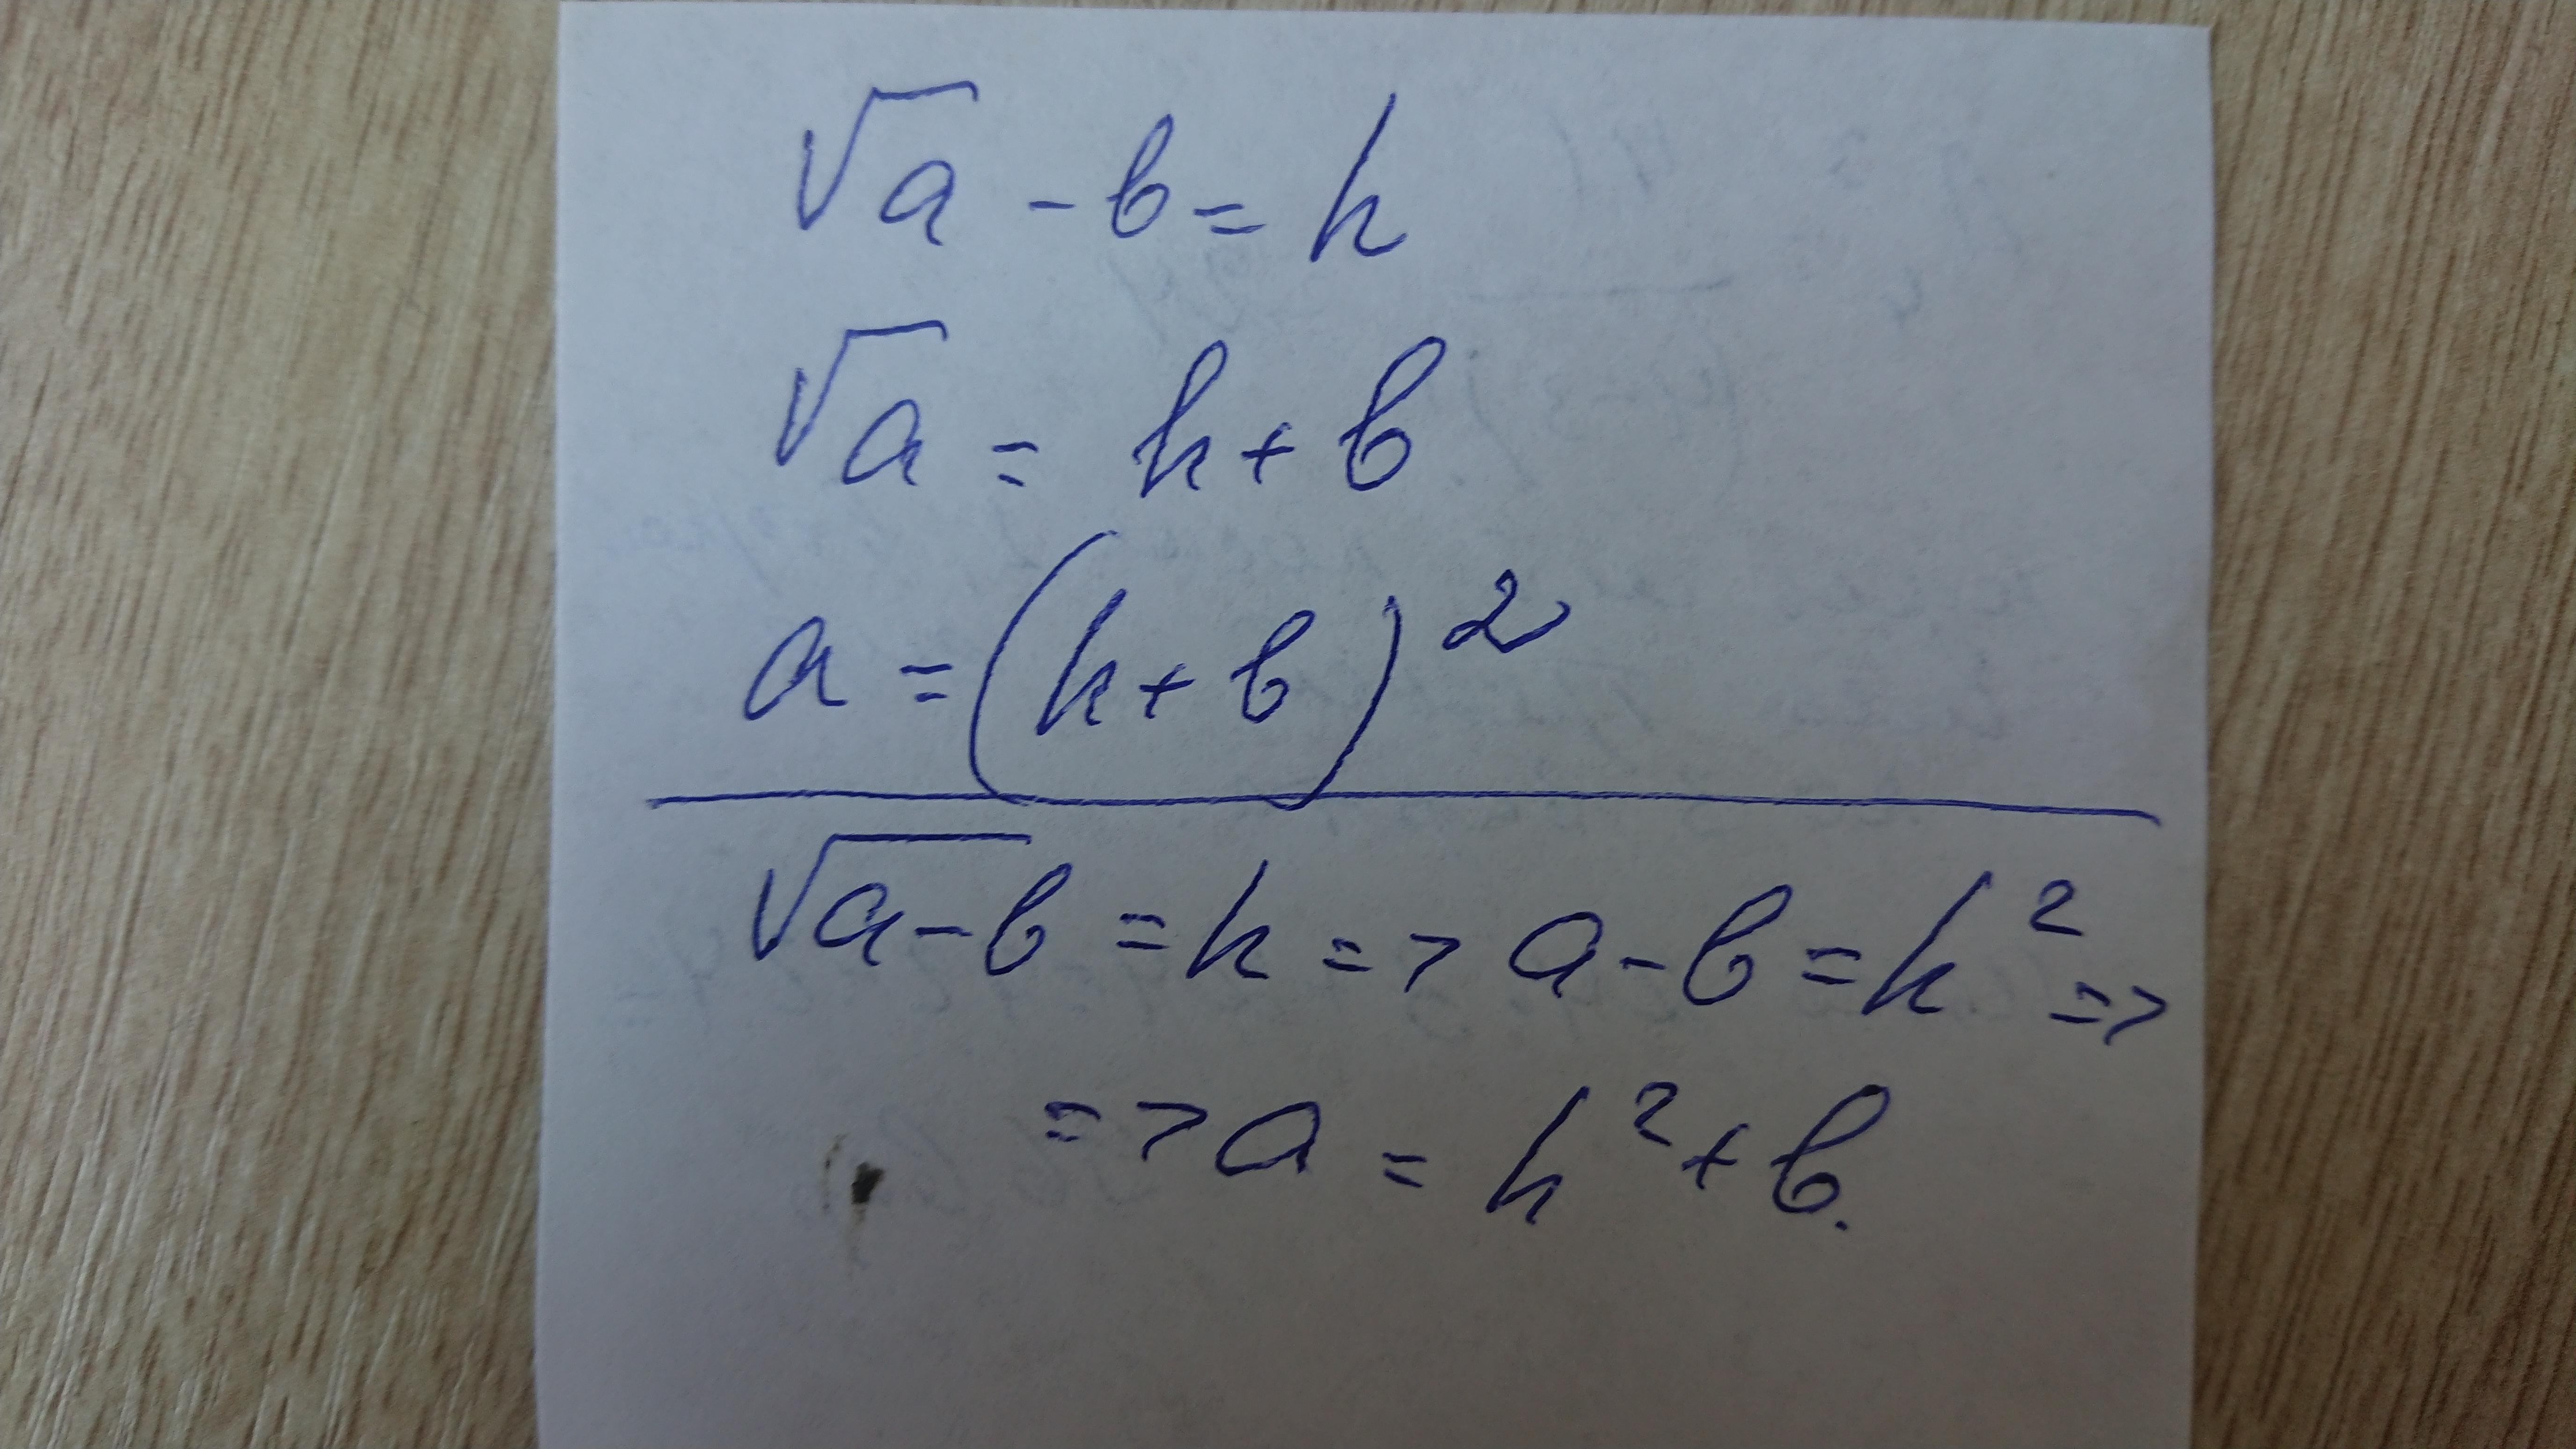 √a - b = h
√a = h + b
a = (h + b)²
√a - b = h => a - b = h² =>
=> a = h² + b.